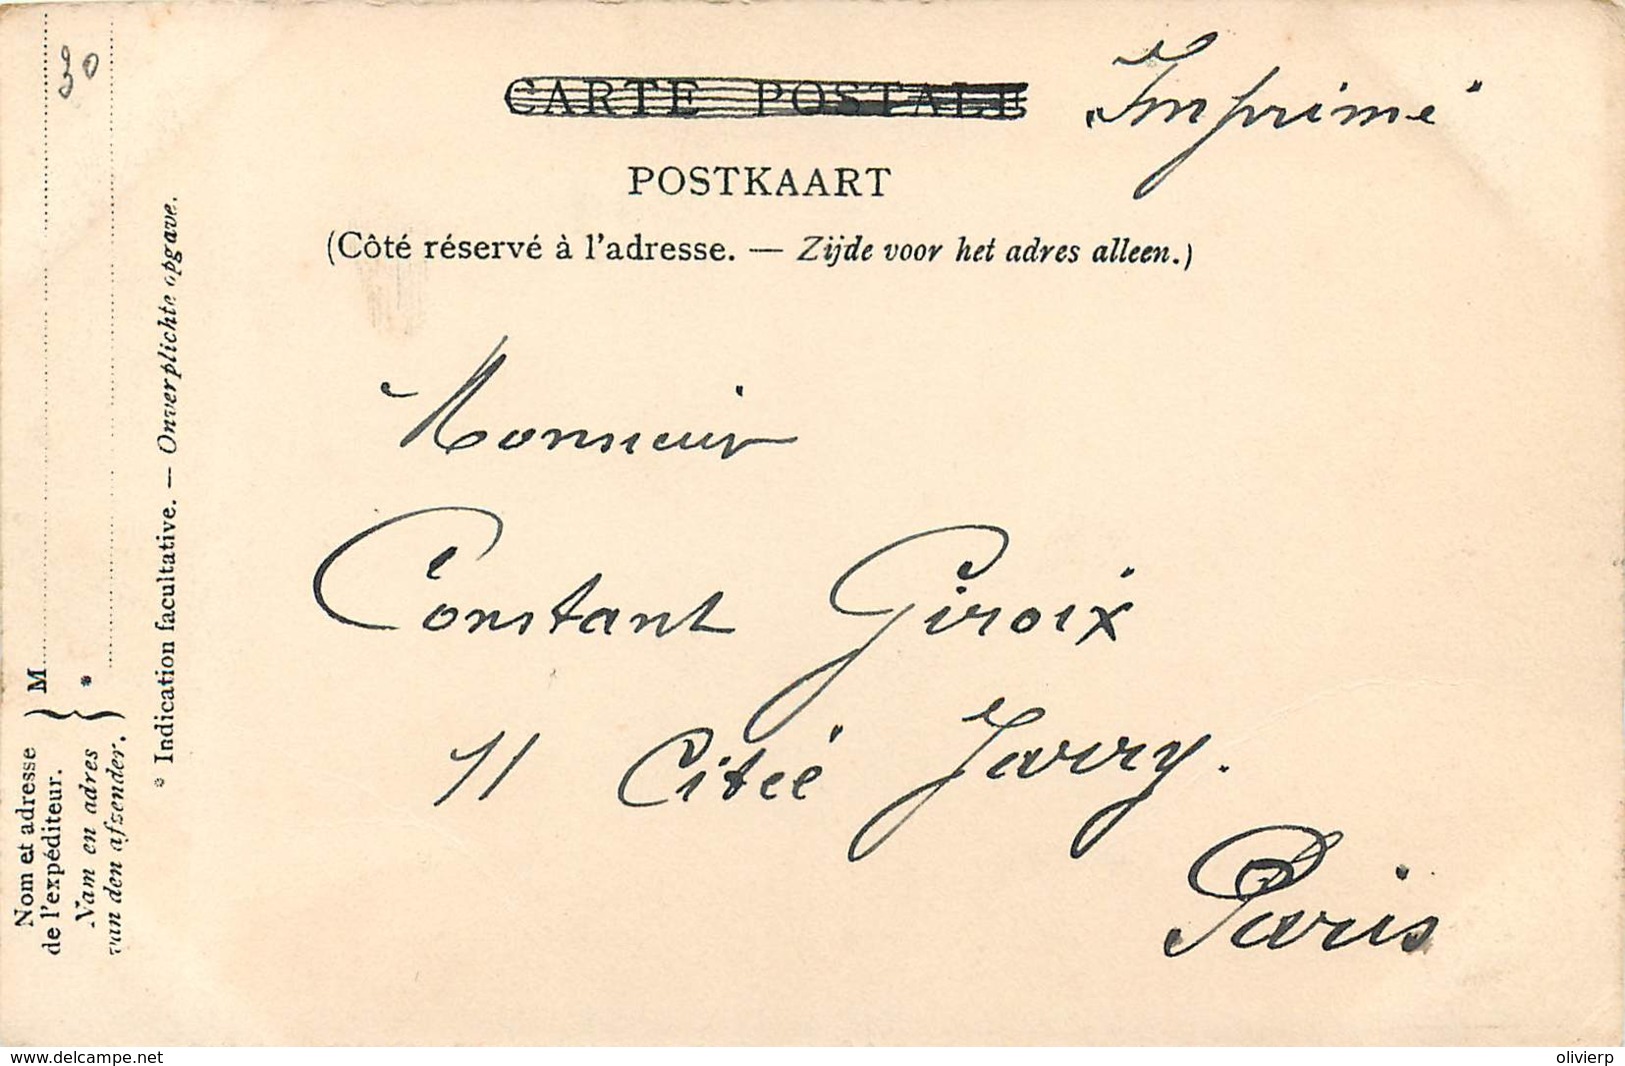 30
CARTE POSTALE Imprimé
POSTKAART
(Côté réservé à l'adresse. — Zijde voor het adres alleen.)
Monsieur
Constant Giroix
11 Citée Jarry.
Paris
Nom et adresse
de l'expéditeur.
Nam en adres
van den afzender.
} M
*
* Indication facultative. — Onverplichte opgave.
www.delcampe.net
olivierp